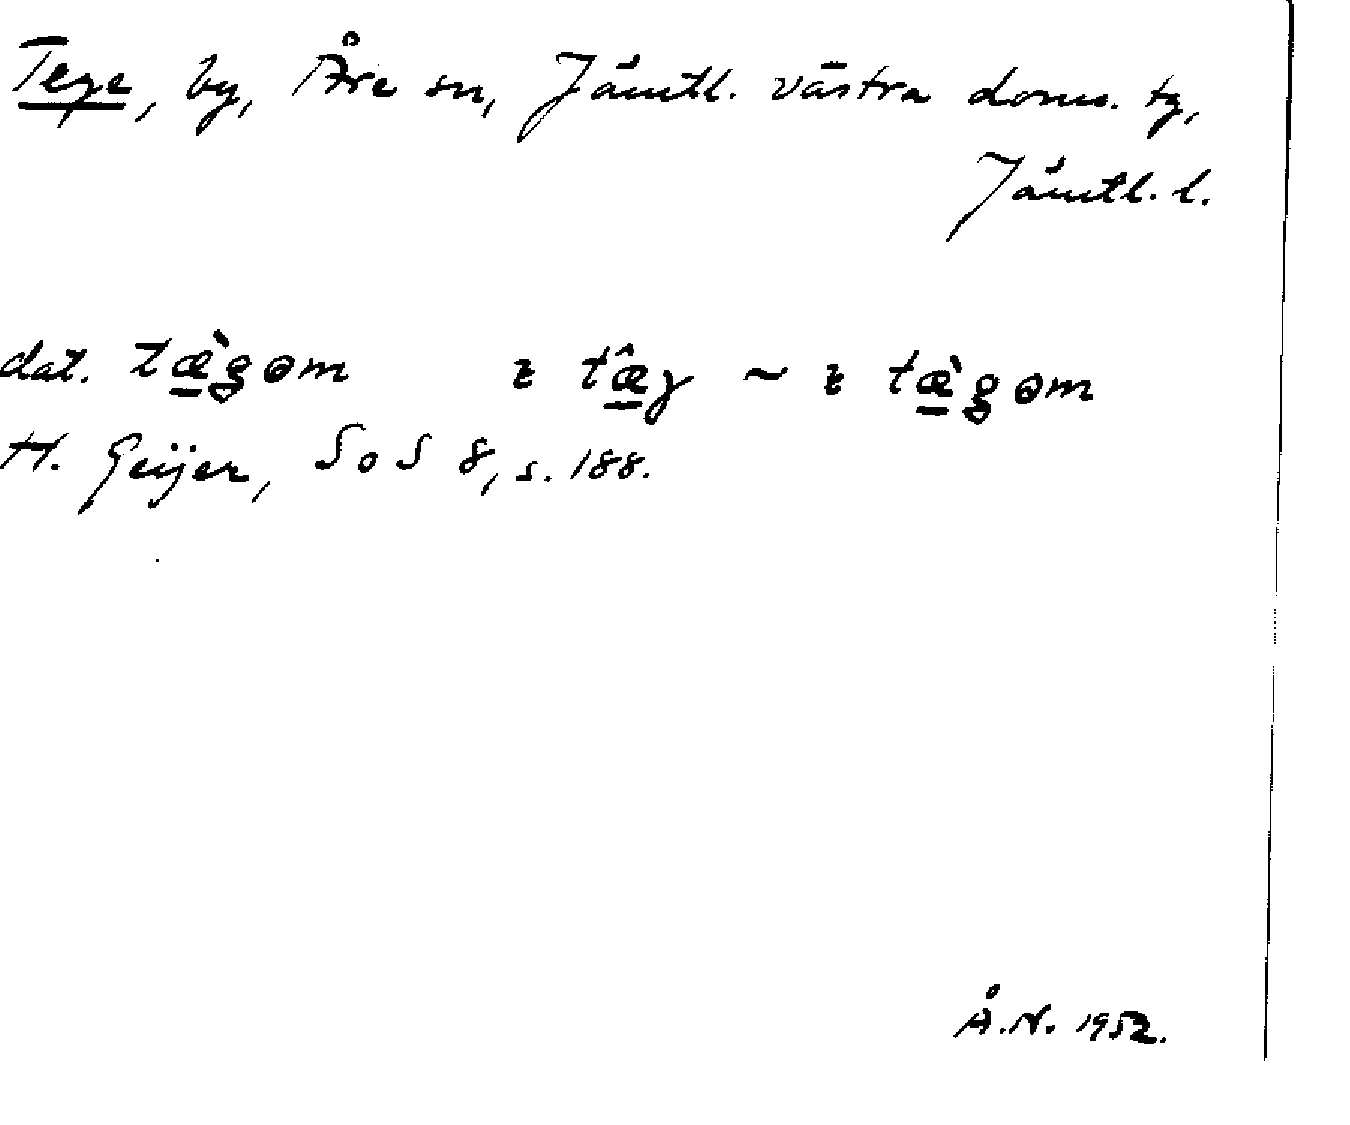 Tege, by, Åre sn, Jämtl. västra doms. tg,
Jämtl. l.
dat. tæ̀gəm ɩ tæ̂g ~ ɩ tæ̀gəm
H. Geijer, SoS 8, s. 188.
Å.N. 1952.